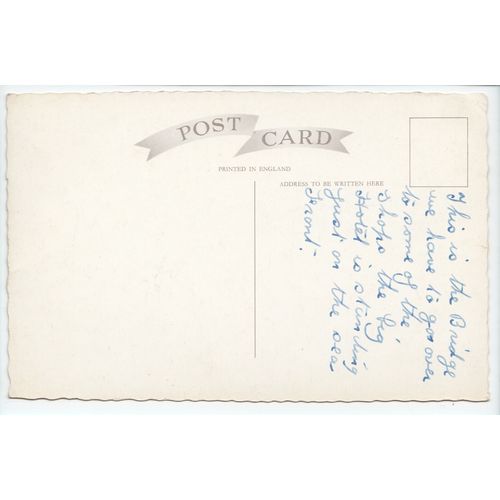 POST CARD
PRINTED IN ENGLAND
ADDRESS TO BE WRITTEN HERE
This is the Bridge
we have to go over
to some of the
shops the big
Hotel is standing
just on the sea
front.